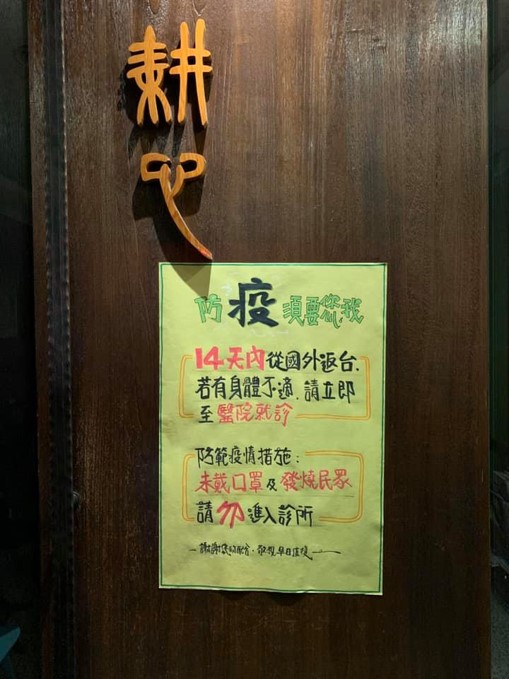 耕心
防疫須要您我
14天內從國外返台.
若有身體不適.請立即
至醫院就診
防範疫情措施:
未戴口罩及發燒民眾
請勿進入診所
謝謝您的配合.敬祝早日康復